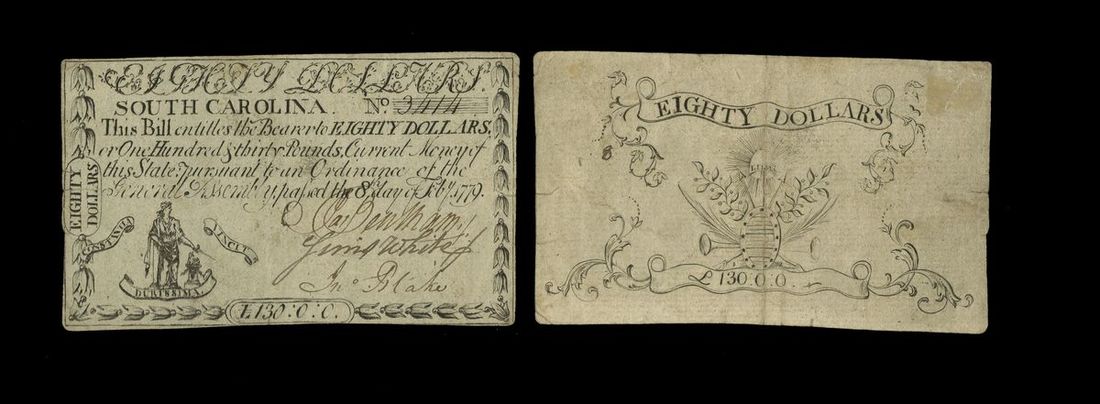 EIGHTY DOLLARS.
SOUTH CAROLINA. No. 3414
This Bill entitles the Bearer to EIGHTY DOLLARS,
or One Hundred & thirty Pounds, Current Money of
this State, pursuant to an Ordinance of the
General Assembly, passed the 8th day of Feby. 1779.
EIGHTY
DOLLARS
Jno. Blake
DURISSIMA
£130:0:0.
EIGHTY DOLLARS
£130:0:0.